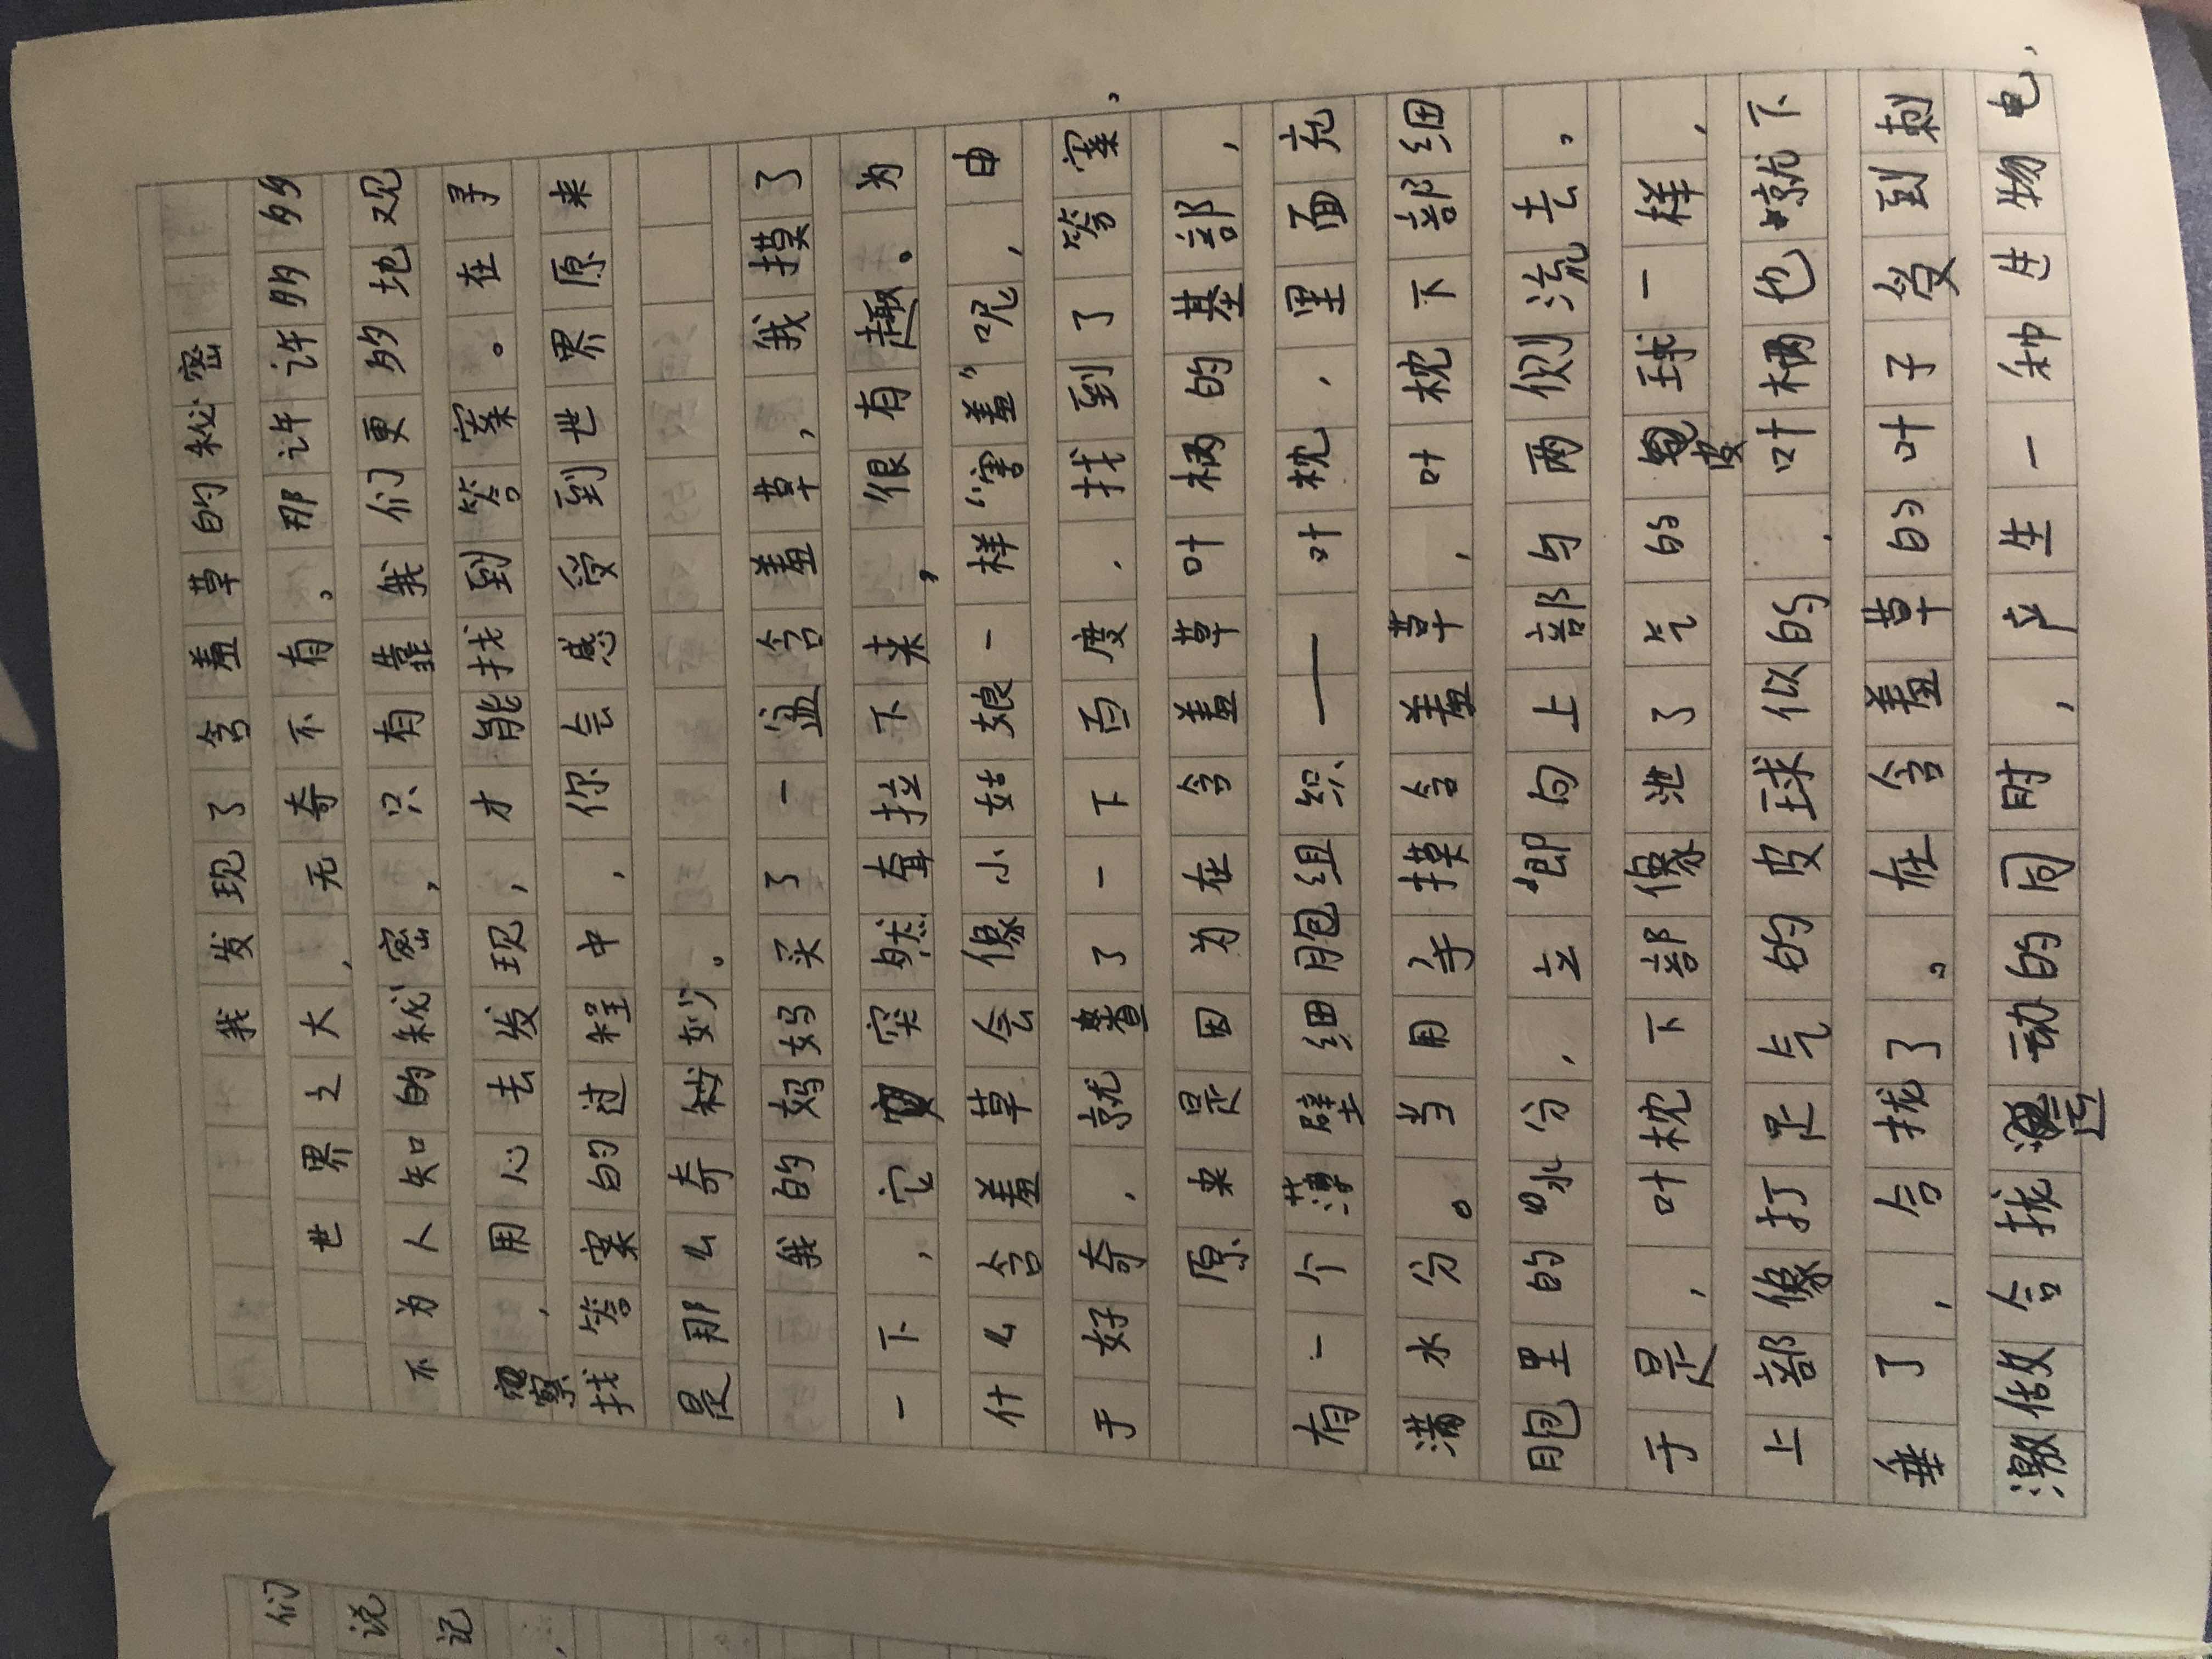 我发现了含羞草的秘密
世界之大，无奇不有。那许许多多
不为人知的秘密，只有靠我们更多地观
察，用心去发现，才能找到答案。在寻
找答案的过程中，你会感受到世界原来
是那么奇妙。
我的妈妈买了一盆含羞草，我摸了
一下，它突然耷拉下来，很有趣。为
什么含羞草会像小姑娘一样“害羞”呢，由
于好奇，就查了一下百度，找到了答案。
原来是因为在含羞草叶柄的基部，
有一个薄壁细胞组织——叶枕，里面充
满水分。当用手摸含羞草，叶枕下部细
胞里的水分，立即向上部与两侧流去。
于是，叶枕下部像泄了气的皮球一样，
上部像打足气的皮球似的，叶柄也就下
垂了，合拢了。在含羞草的叶子受到刺
激做合拢运动的同时，产生一种生物电，
们
说
记
，